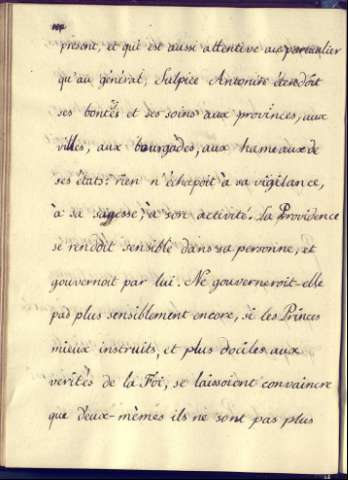 présent, et qui est aussi attentive au particulier
qu'au général, Sulpice Antonite étendoit
ses bontés et ses soins aux provinces, aux
villes, aux bourgades, aux hameaux de
ses états: rien n'échapoit à sa vigilance,
à sa sagesse, à son activité. La Providence
se rendoit sensible dans sa personne, et
gouvernoit par lui. Ne gouverneroit-elle
pas plus sensiblement encore, si les Princes
mieux instruits, et plus dociles aux
verités de la Foi, se laissoient convaincre
que d'eux-mêmes ils ne sont pas plus